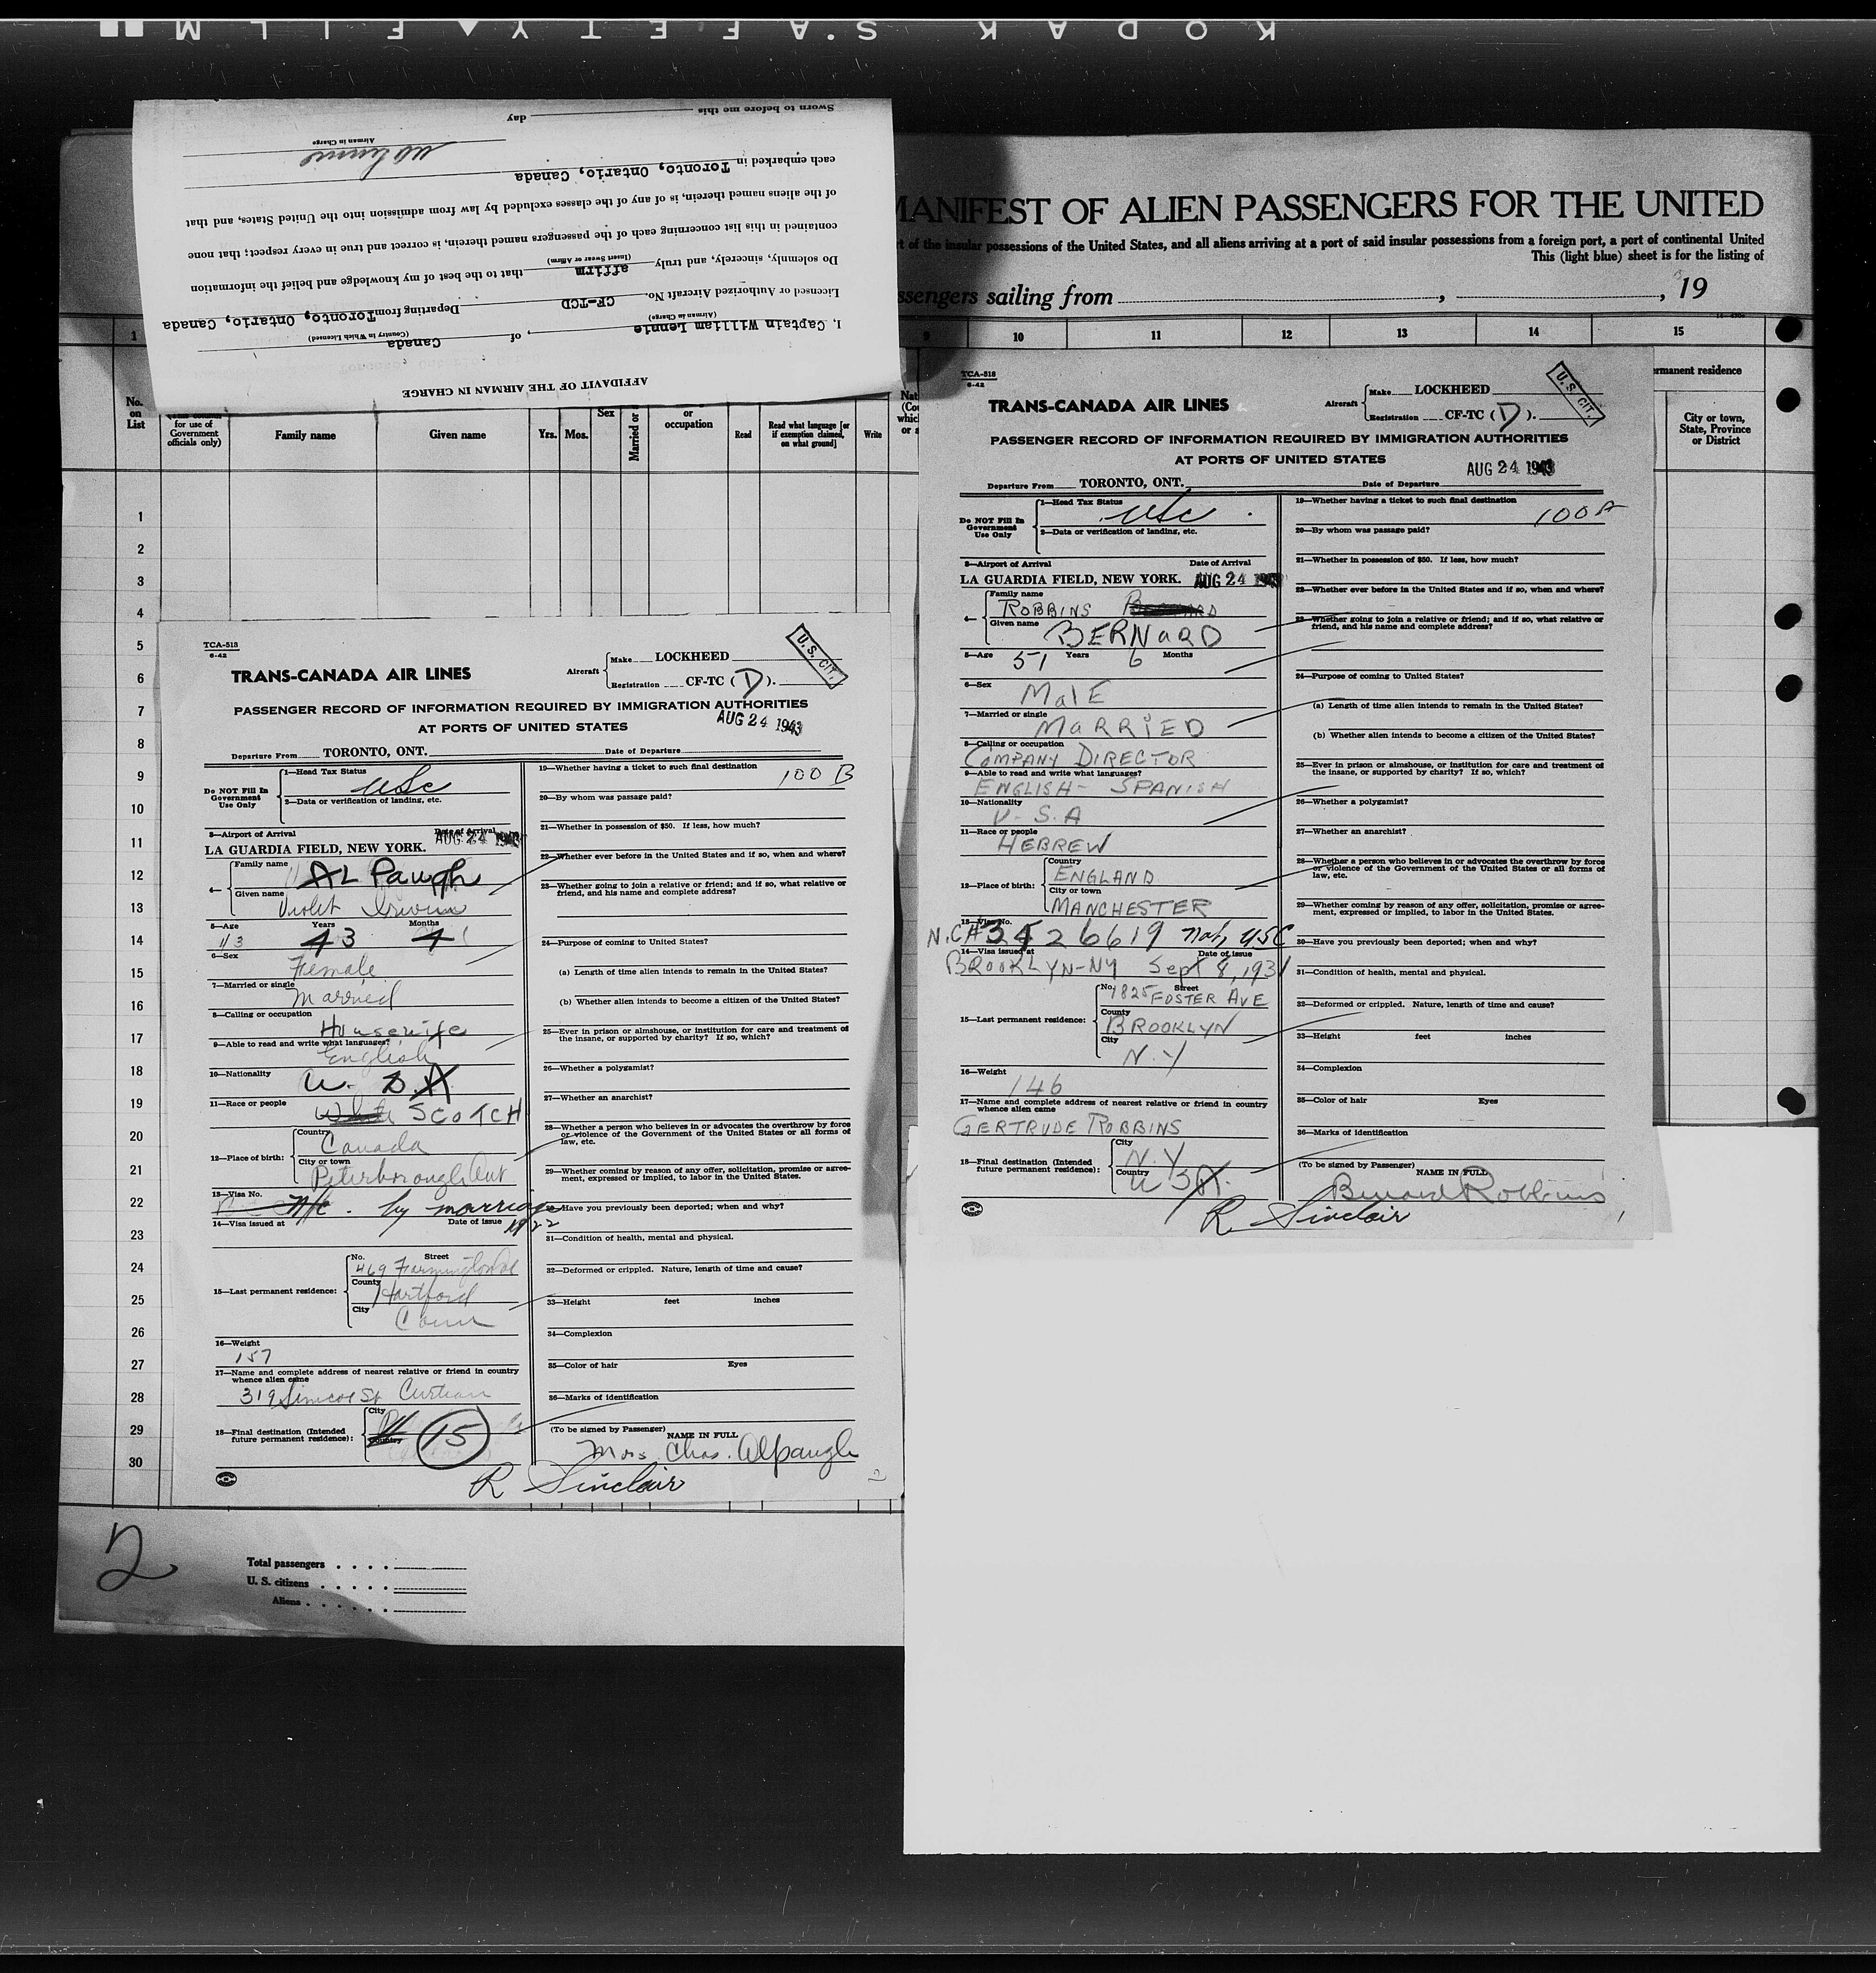 KODAK SAFETY FILM
AFFIDAVIT OF THE AIRMAN IN CHARGE
I, Captain William Lennie, of Canada
(Airman in Charge) (Country in Which Licensed)
Licensed or Authorized Aircraft No. CF-TCD Departing from Toronto, Ontario, Canada
Do solemnly, sincerely, and truly affirm that to the best of my knowledge and belief the information
(Insert Swear or Affirm)
contained in this list concerning each of the passengers named therein, is correct and true in every respect; that none
of the aliens named therein, is of any of the classes excluded by law from admission into the United States, and that
each embarked in Toronto, Ontario, Canada
Airman in Charge
Sworn to before me this day
MANIFEST OF ALIEN PASSENGERS FOR THE UNITED
rt of the insular possessions of the United States, and all aliens arriving at a port of said insular possessions from a foreign port, a port of continental United
This (light blue) sheet is for the listing of
ssengers sailing from , , 19
1 9 10 11 12 13 14 15
No. on List
for use of Government officials only)
Family name
Given name
Yrs. Mos.
Sex
Married or
or occupation
Read
Read what language [or if exemption claimed, on what ground]
Write
rmanent residence
City or town, State, Province or District
1
2
3
4
5
6
7
8
9
10
11
12
13
14
15
16
17
18
19
20
21
22
23
24
25
26
27
28
29
30
TCA-518
6-42
TRANS-CANADA AIR LINES
Aircraft Make LOCKHEED
Registration CF-TC (D).
U.S. CIT.
PASSENGER RECORD OF INFORMATION REQUIRED BY IMMIGRATION AUTHORITIES
AT PORTS OF UNITED STATES
AUG 24 1943
Departure From TORONTO, ONT. Date of Departure
Do NOT Fill In Government Use Only
1—Head Tax Status USC
2—Data or verification of landing, etc.
3—Airport of Arrival Date of Arrival
LA GUARDIA FIELD, NEW YORK. AUG 24 1943
4— Family name AL Paugh
Given name Violet
5—Age 43 Years Months
6—Sex Female
7—Married or single Married
8—Calling or occupation Housewife
9—Able to read and write what languages? English
10—Nationality U.S.A
11—Race or people White SCOTCH
12—Place of birth: Country Canada
City or town Peterborough Ont
13—Visa No. by marriage
14—Visa issued at Date of issue 1922
15—Last permanent residence: No. Street 469 Farmington
County Hartford
City Conn
16—Weight 157
17—Name and complete address of nearest relative or friend in country whence alien came
319 Simcoe St
18—Final destination (Intended future permanent residence): City
Country
15
19—Whether having a ticket to such final destination 100 B
20—By whom was passage paid?
21—Whether in possession of $50. If less, how much?
22—Whether ever before in the United States and if so, when and where?
23—Whether going to join a relative or friend; and if so, what relative or friend, and his name and complete address?
24—Purpose of coming to United States?
(a) Length of time alien intends to remain in the United States?
(b) Whether alien intends to become a citizen of the United States?
25—Ever in prison or almshouse, or institution for care and treatment of the insane, or supported by charity? If so, which?
26—Whether a polygamist?
27—Whether an anarchist?
28—Whether a person who believes in or advocates the overthrow by force or violence of the Government of the United States or all forms of law, etc.
29—Whether coming by reason of any offer, solicitation, promise or agreement, expressed or implied, to labor in the United States.
30—Have you previously been deported; when and why?
31—Condition of health, mental and physical.
32—Deformed or crippled. Nature, length of time and cause?
33—Height feet inches
34—Complexion
35—Color of hair Eyes
36—Marks of identification
(To be signed by Passenger) NAME IN FULL
Mrs. Chas. Alpaugh
R Sinclair
2
TCA-518
6-42
TRANS-CANADA AIR LINES
Aircraft Make LOCKHEED
Registration CF-TC (D).
U.S. CIT.
PASSENGER RECORD OF INFORMATION REQUIRED BY IMMIGRATION AUTHORITIES
AT PORTS OF UNITED STATES
AUG 24 1943
Departure From TORONTO, ONT. Date of Departure
Do NOT Fill In Government Use Only
1—Head Tax Status USC
2—Data or verification of landing, etc.
3—Airport of Arrival Date of Arrival
LA GUARDIA FIELD, NEW YORK. AUG 24 1943
4— Family name ROBBINS
Given name BERNARD
5—Age 51 Years 6 Months
6—Sex MALE
7—Married or single MARRIED
8—Calling or occupation COMPANY DIRECTOR
9—Able to read and write what languages? ENGLISH - SPANISH
10—Nationality U.S.A
11—Race or people HEBREW
12—Place of birth: Country ENGLAND
City or town MANCHESTER
13—Visa No. N.C.# 3426619 Nat. USC
14—Visa issued at Date of issue
BROOKLYN-NY Sept 8, 1931
15—Last permanent residence: No. Street 1825 FOSTER AVE
County BROOKLYN
City N.Y
16—Weight 146
17—Name and complete address of nearest relative or friend in country whence alien came
GERTRUDE ROBBINS
18—Final destination (Intended future permanent residence): City N.Y
Country USA.
19—Whether having a ticket to such final destination 100 A
20—By whom was passage paid?
21—Whether in possession of $50. If less, how much?
22—Whether ever before in the United States and if so, when and where?
23—Whether going to join a relative or friend; and if so, what relative or friend, and his name and complete address?
24—Purpose of coming to United States?
(a) Length of time alien intends to remain in the United States?
(b) Whether alien intends to become a citizen of the United States?
25—Ever in prison or almshouse, or institution for care and treatment of the insane, or supported by charity? If so, which?
26—Whether a polygamist?
27—Whether an anarchist?
28—Whether a person who believes in or advocates the overthrow by force or violence of the Government of the United States or all forms of law, etc.
29—Whether coming by reason of any offer, solicitation, promise or agreement, expressed or implied, to labor in the United States.
30—Have you previously been deported; when and why?
31—Condition of health, mental and physical.
32—Deformed or crippled. Nature, length of time and cause?
33—Height feet inches
34—Complexion
35—Color of hair Eyes
36—Marks of identification
(To be signed by Passenger) NAME IN FULL
Bernard Robbins
R. Sinclair
2
Total passengers
U. S. citizens
Aliens